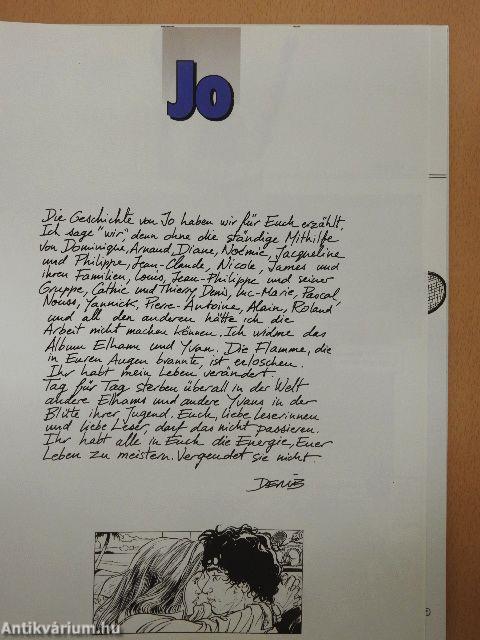 Jo
Die Geschichte von Jo haben wir für Euch erzählt.
Ich sage "wir" denn ohne die ständige Mithilfe
von Dominique, Arnaud, Diane, Noémie, Jacqueline
und Philippe, Jean-Claude, Nicole, James und
ihren Familien, Louis, Jean-Philippe und seiner
Gruppe, Cathie und Thierry, Denis, Luc-Marie, Pascal,
Nouss, Yannick, Pierre-Antoine, Alain, Roland
und all den anderen hätte ich die
Arbeit nicht machen können. Ich widme das
Album Elham und Yvan. Die Flamme, die
in Euren Augen brannte, ist erloschen.
Ihr habt mein Leben verändert.
Tag für Tag sterben überall in der Welt
andere Elhams und andere Yvans in der
Blüte ihrer Jugend. Euch, liebe Leserinnen
und liebe Leser, darf das nicht passieren.
Ihr habt alle in Euch die Energie, Euer
Leben zu meistern. Vergeudet sie nicht.
DERIB
Antikvárium.hu